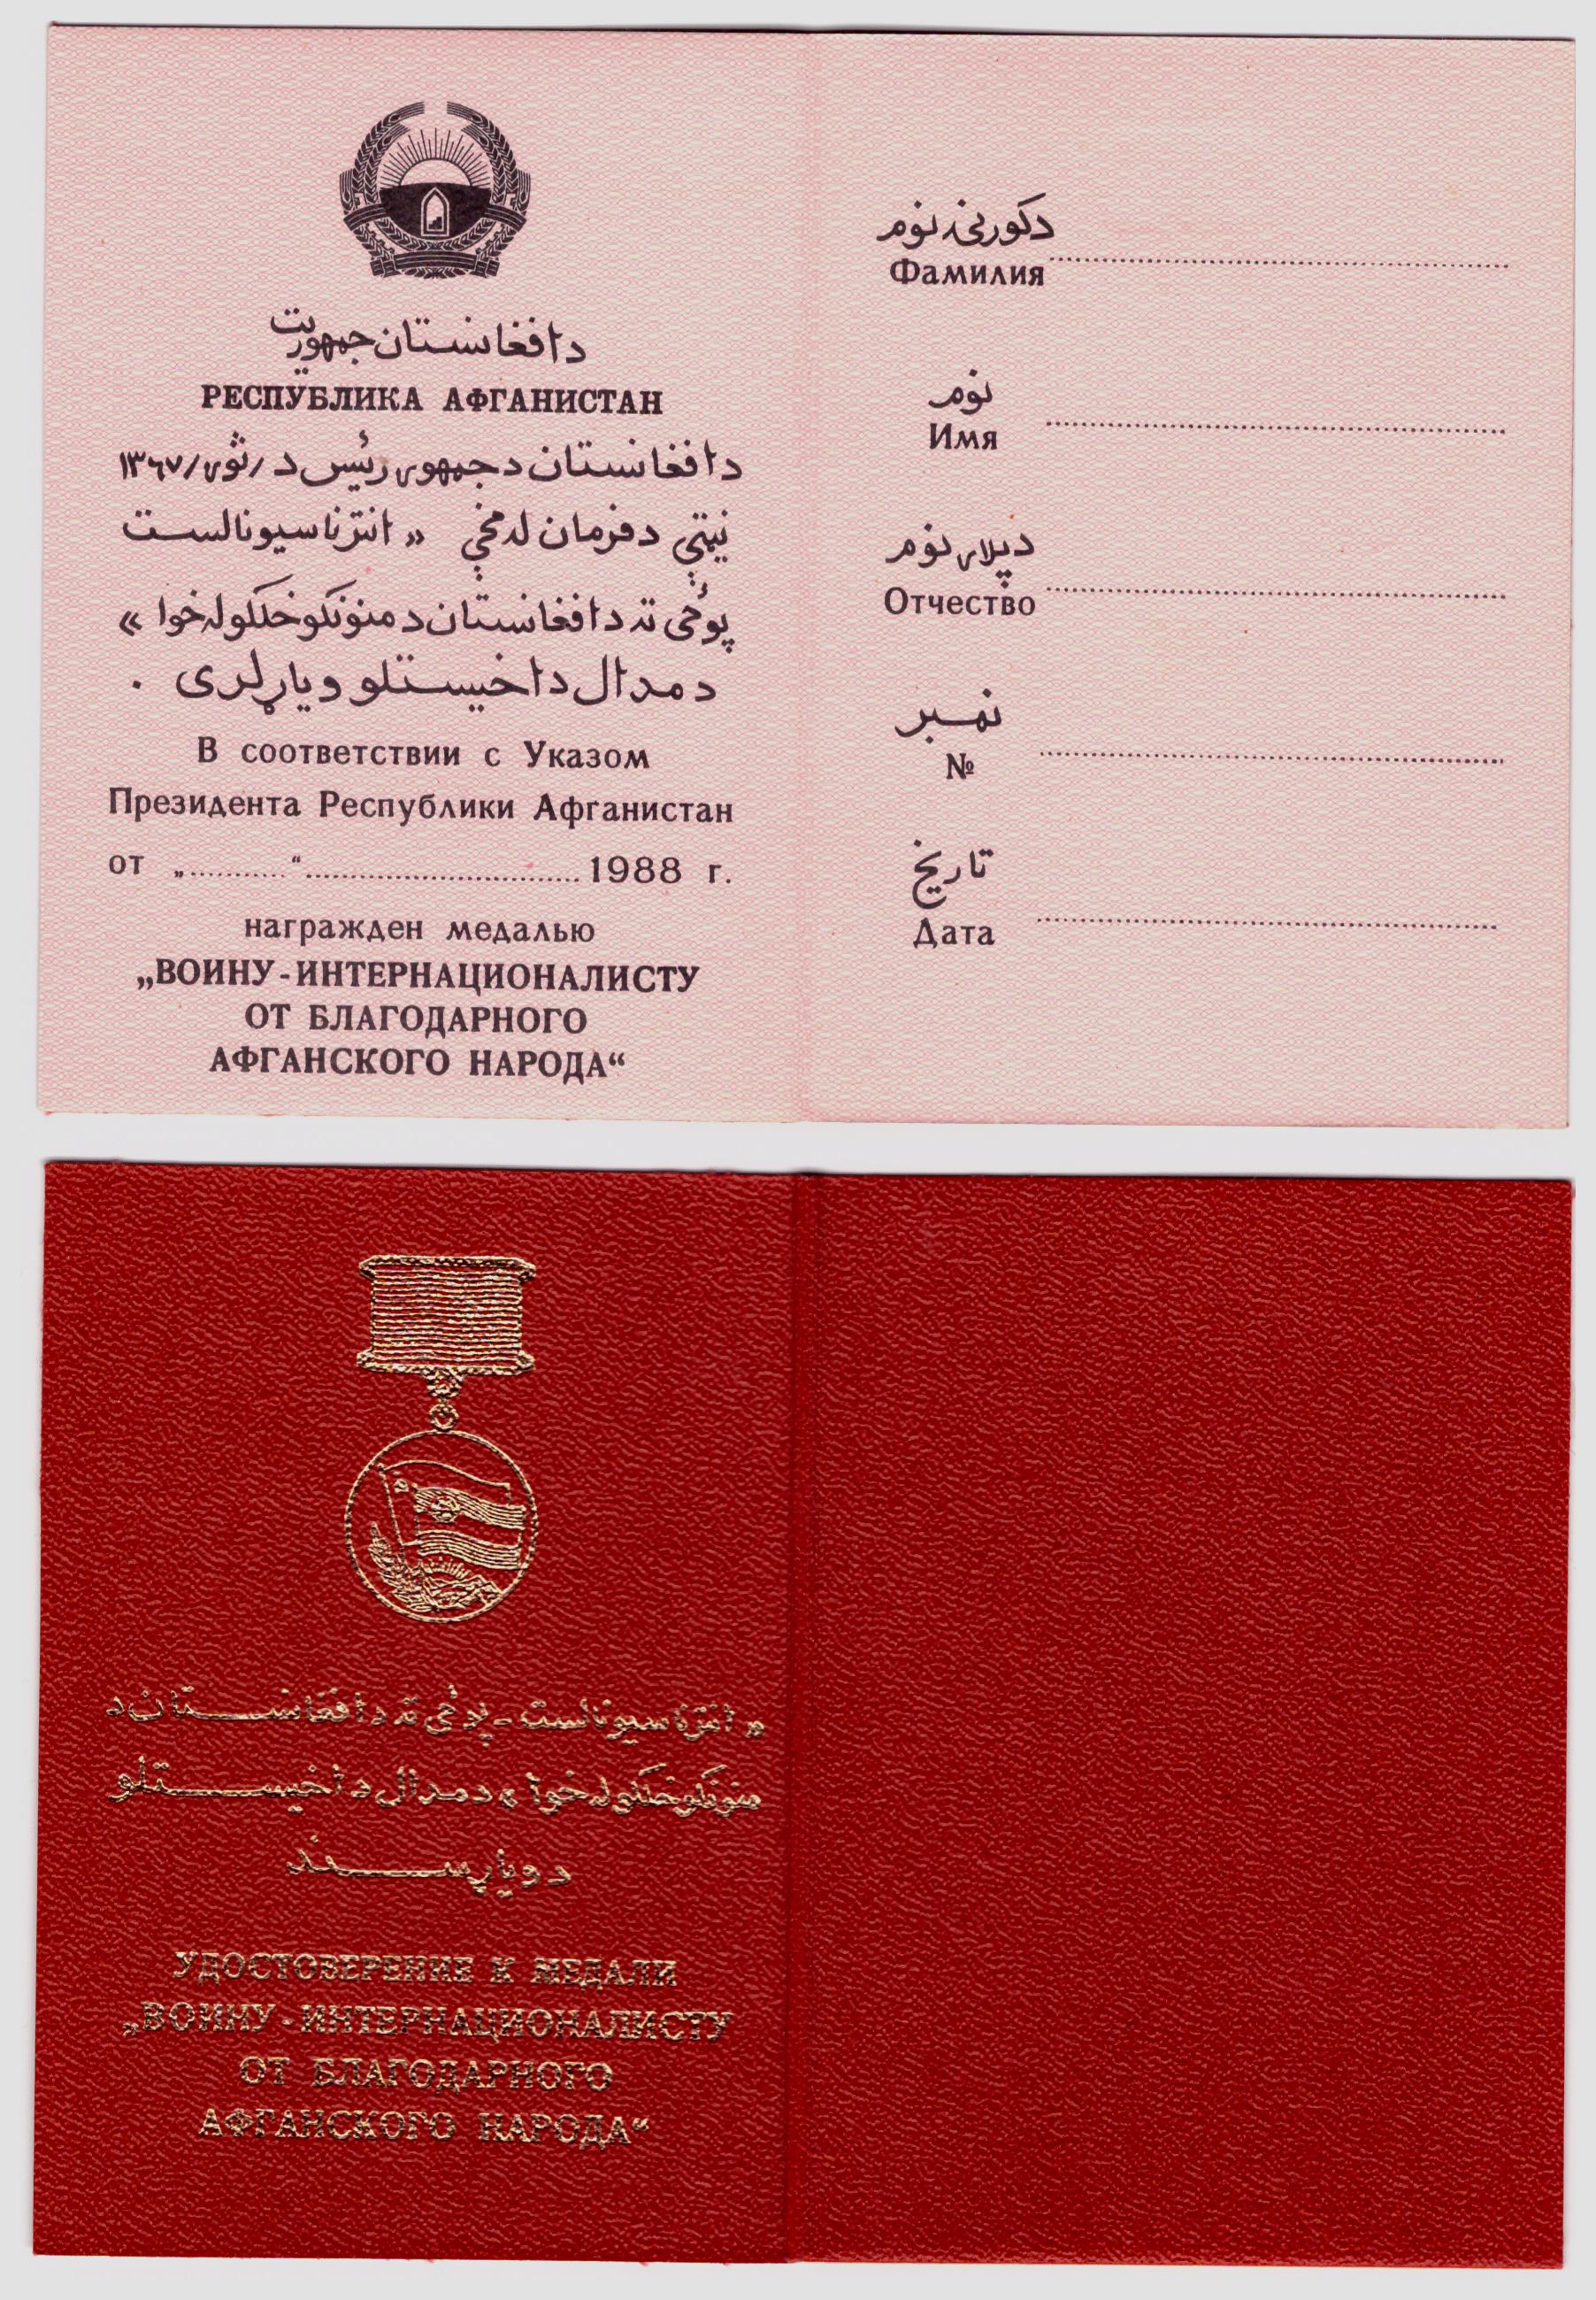 د افغانستان جمهوریت
РЕСПУБЛИКА АФГАНИСТАН
د افغانستان د جمهور رئیس د / ثور / ۱۳۶۷
نیټې د فرمان له مخې « انترناسیونالست
پوځی ته د افغانستان د منونکو خلکو له خوا »
د مدال د اخیستلو ویاړ لری .
В соответствии с Указом
Президента Республики Афганистан
от „..........“.............................1988 г.
награжден медалью
„ВОИНУ-ИНТЕРНАЦИОНАЛИСТУ
ОТ БЛАГОДАРНОГО
АФГАНСКОГО НАРОДА“
د کورنۍ نوم
Фамилия
نوم
Имя
د پلار نوم
Отчество
نمبر
№
تاریخ
Дата
« انترناسیونالست - پوځی ته د افغانستان د
منونکو خلکو له خوا » د مدال د اخیستلو
د ویاړ سند
УДОСТОВЕРЕНИЕ К МЕДАЛИ
„ВОИНУ-ИНТЕРНАЦИОНАЛИСТУ
ОТ БЛАГОДАРНОГО
АФГАНСКОГО НАРОДА“